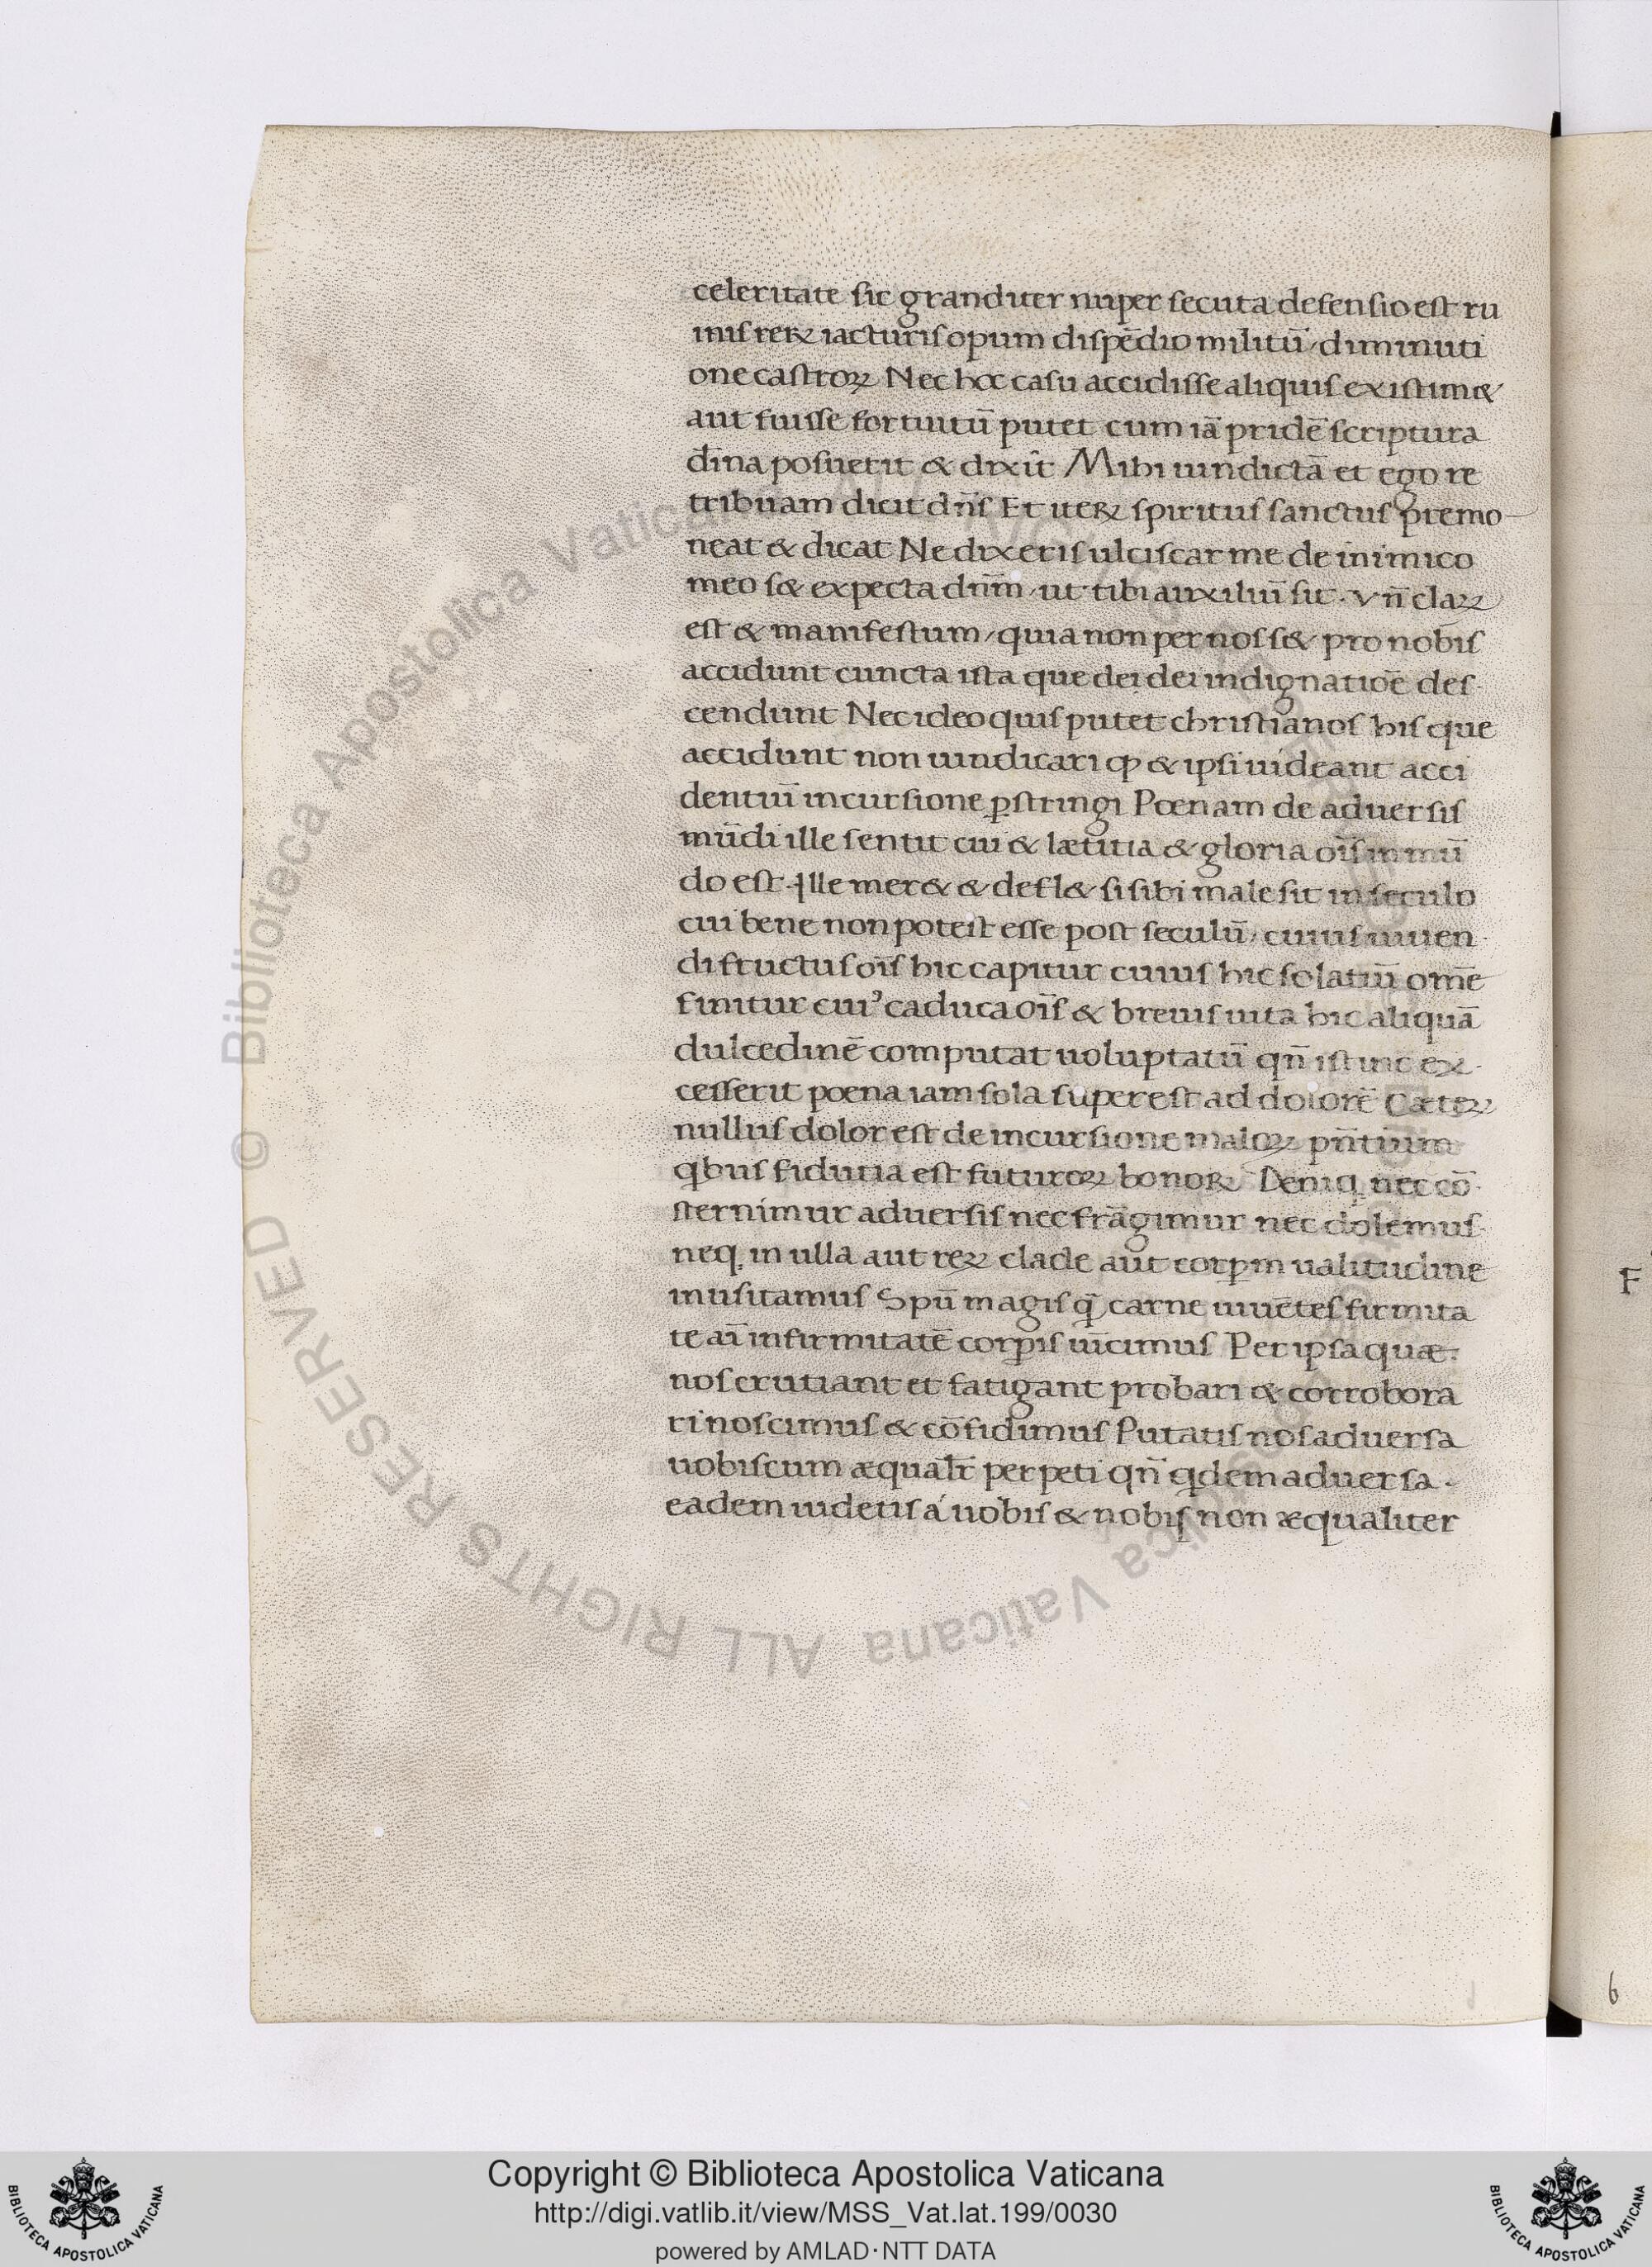 celeritate sic granditer nuper secuta defensio est ru
inis reꝝ iacturis opum dispēdio militū, diminuti
one castroꝝ Nec hoc casu accidisse aliquis existim&
aut fuisse fortuitū putet cum iā pridē scriptura
dīna posuerit & dixit Mihi uindictā et ego re
tribuam dicit dn̄s Et iteꝝ spiritus sanctus premo
neat & dicat Ne dixeris ulciscar me de inimico
meo s& expecta dn̄m, ut tibi auxiliū sit. Vn̄ claꝝ
est & manifestum, quia non per nos s& pro nobis
accidunt cuncta ista que dei dei indignatiōe des-
cendunt Nec ideo quis putet christianos his que
accidunt non uindicari ꝙ & ipsi uideant acci
dentiū incursione ꝑstringi Poenam de aduersis
mūdi ille sentit cui & lætitia & gloria oīs in mū
do est. Ille mer& & defl& si sibi male sit in seculo
cui bene non poteist esse post seculū, cuius uiuen
di fructus oīs hic capitur cuius hic solatiū om̄e
finitur cuiꝰ caduca oīs & breuis uita hic aliquā
dulcedinē computat uoluptatū qn̄ istinc ex-
cesserit poena iam sola superest ad dolorē Cæteꝝ
nullus dolor est de incursione maloꝝ pn̄tium
qbus fidutia est futuroꝝ bonoꝝ Deniq, nec cō
sternimur aduersis nec frāgimur nec dolemus
neq, in ulla aut reꝝ clade aut corꝑm ualitudine
musitamus Spū magis q̄ carne uiuētes firmita
te aī infirmitatē corꝑis uīcimus Per ipsa quæ
nos crutiant et fatigant probari & corrobora
ri noscimus & cōfidimus Putatis nos aduersa
uobiscum æqualr̄ perpeti qn̄ qdem aduersa
eadem uidetis á uobis & nobis non æqualiter
F
6
© Biblioteca Apostolica Vaticana ALL RIGHTS RESERVED
Copyright © Biblioteca Apostolica Vaticana
http://digi.vatlib.it/view/MSS_Vat.lat.199/0030
powered by AMLAD·NTT DATA
BIBLIOTECA APOSTOLICA VATICANA
BIBLIOTECA APOSTOLICA VATICANA